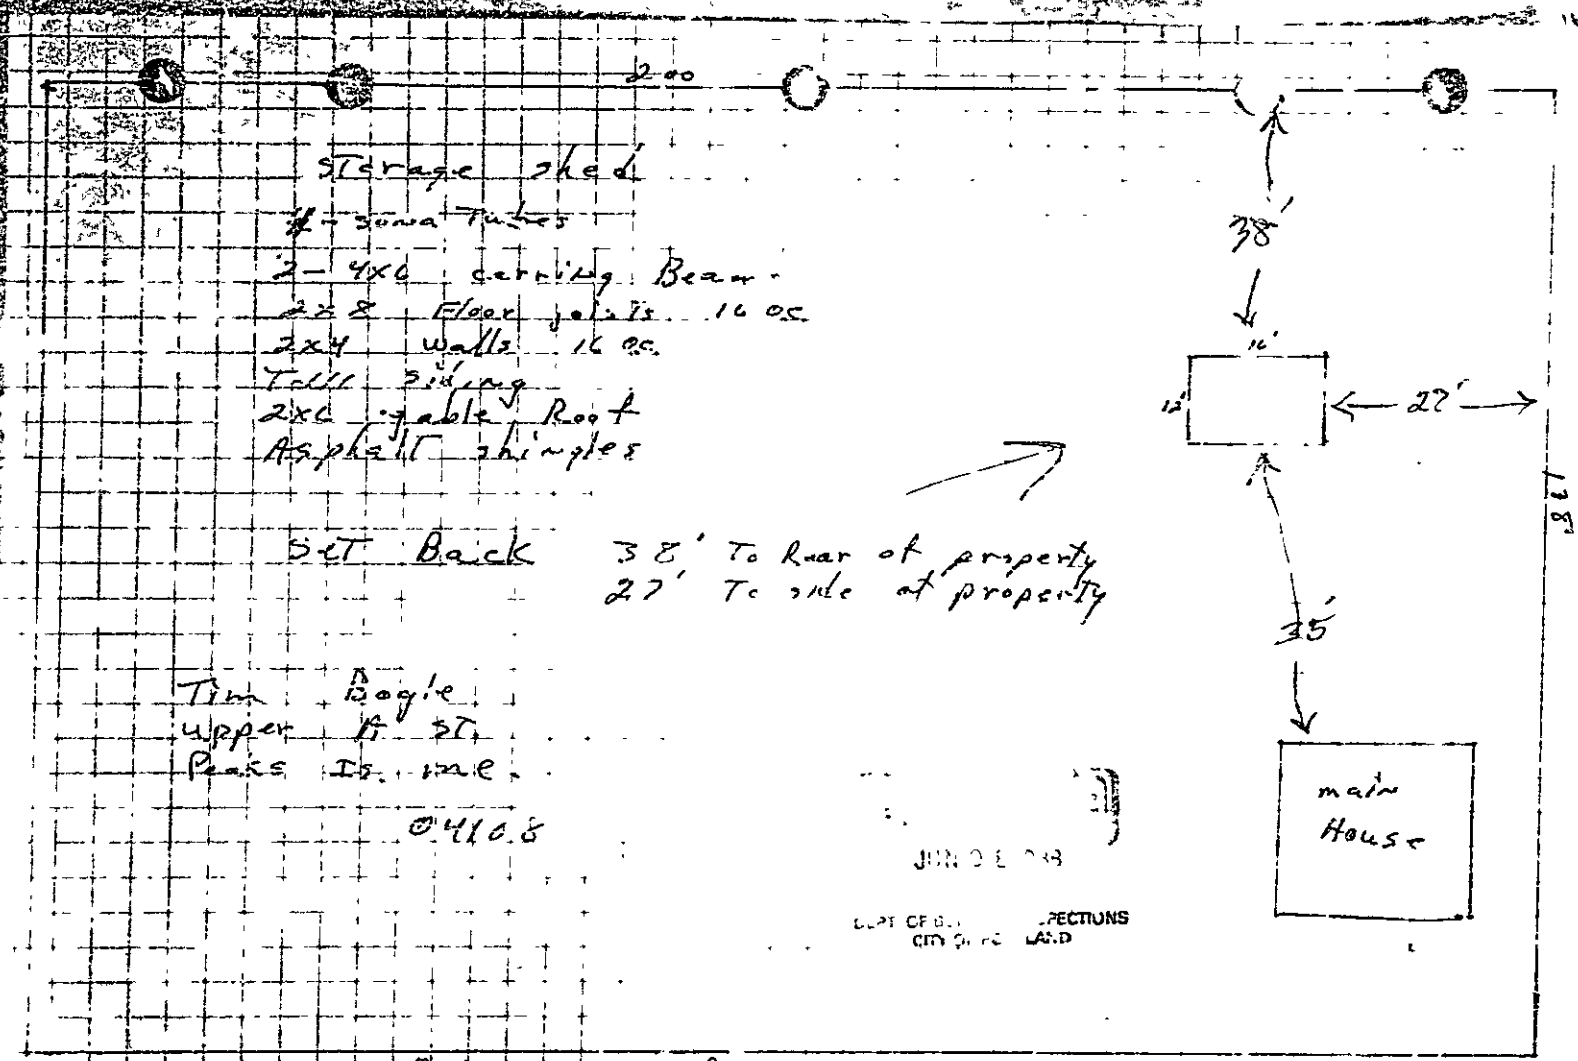 200
Storage shed
4 - sona Tubes
2 - 4x6 carring Beam.
2x8 Floor joists 16 oc
2x4 walls 16 oc.
T-111 siding
2x6 gable Roof
Asphalt shingles
38'
16'
12'
27'
Set Back 38' To Rear of property
27' To side of property
35'
Tim Bogle
upper A ST.
Peaks Is. me.
04108
main
House
JUN
DEPT OF
CITY OF